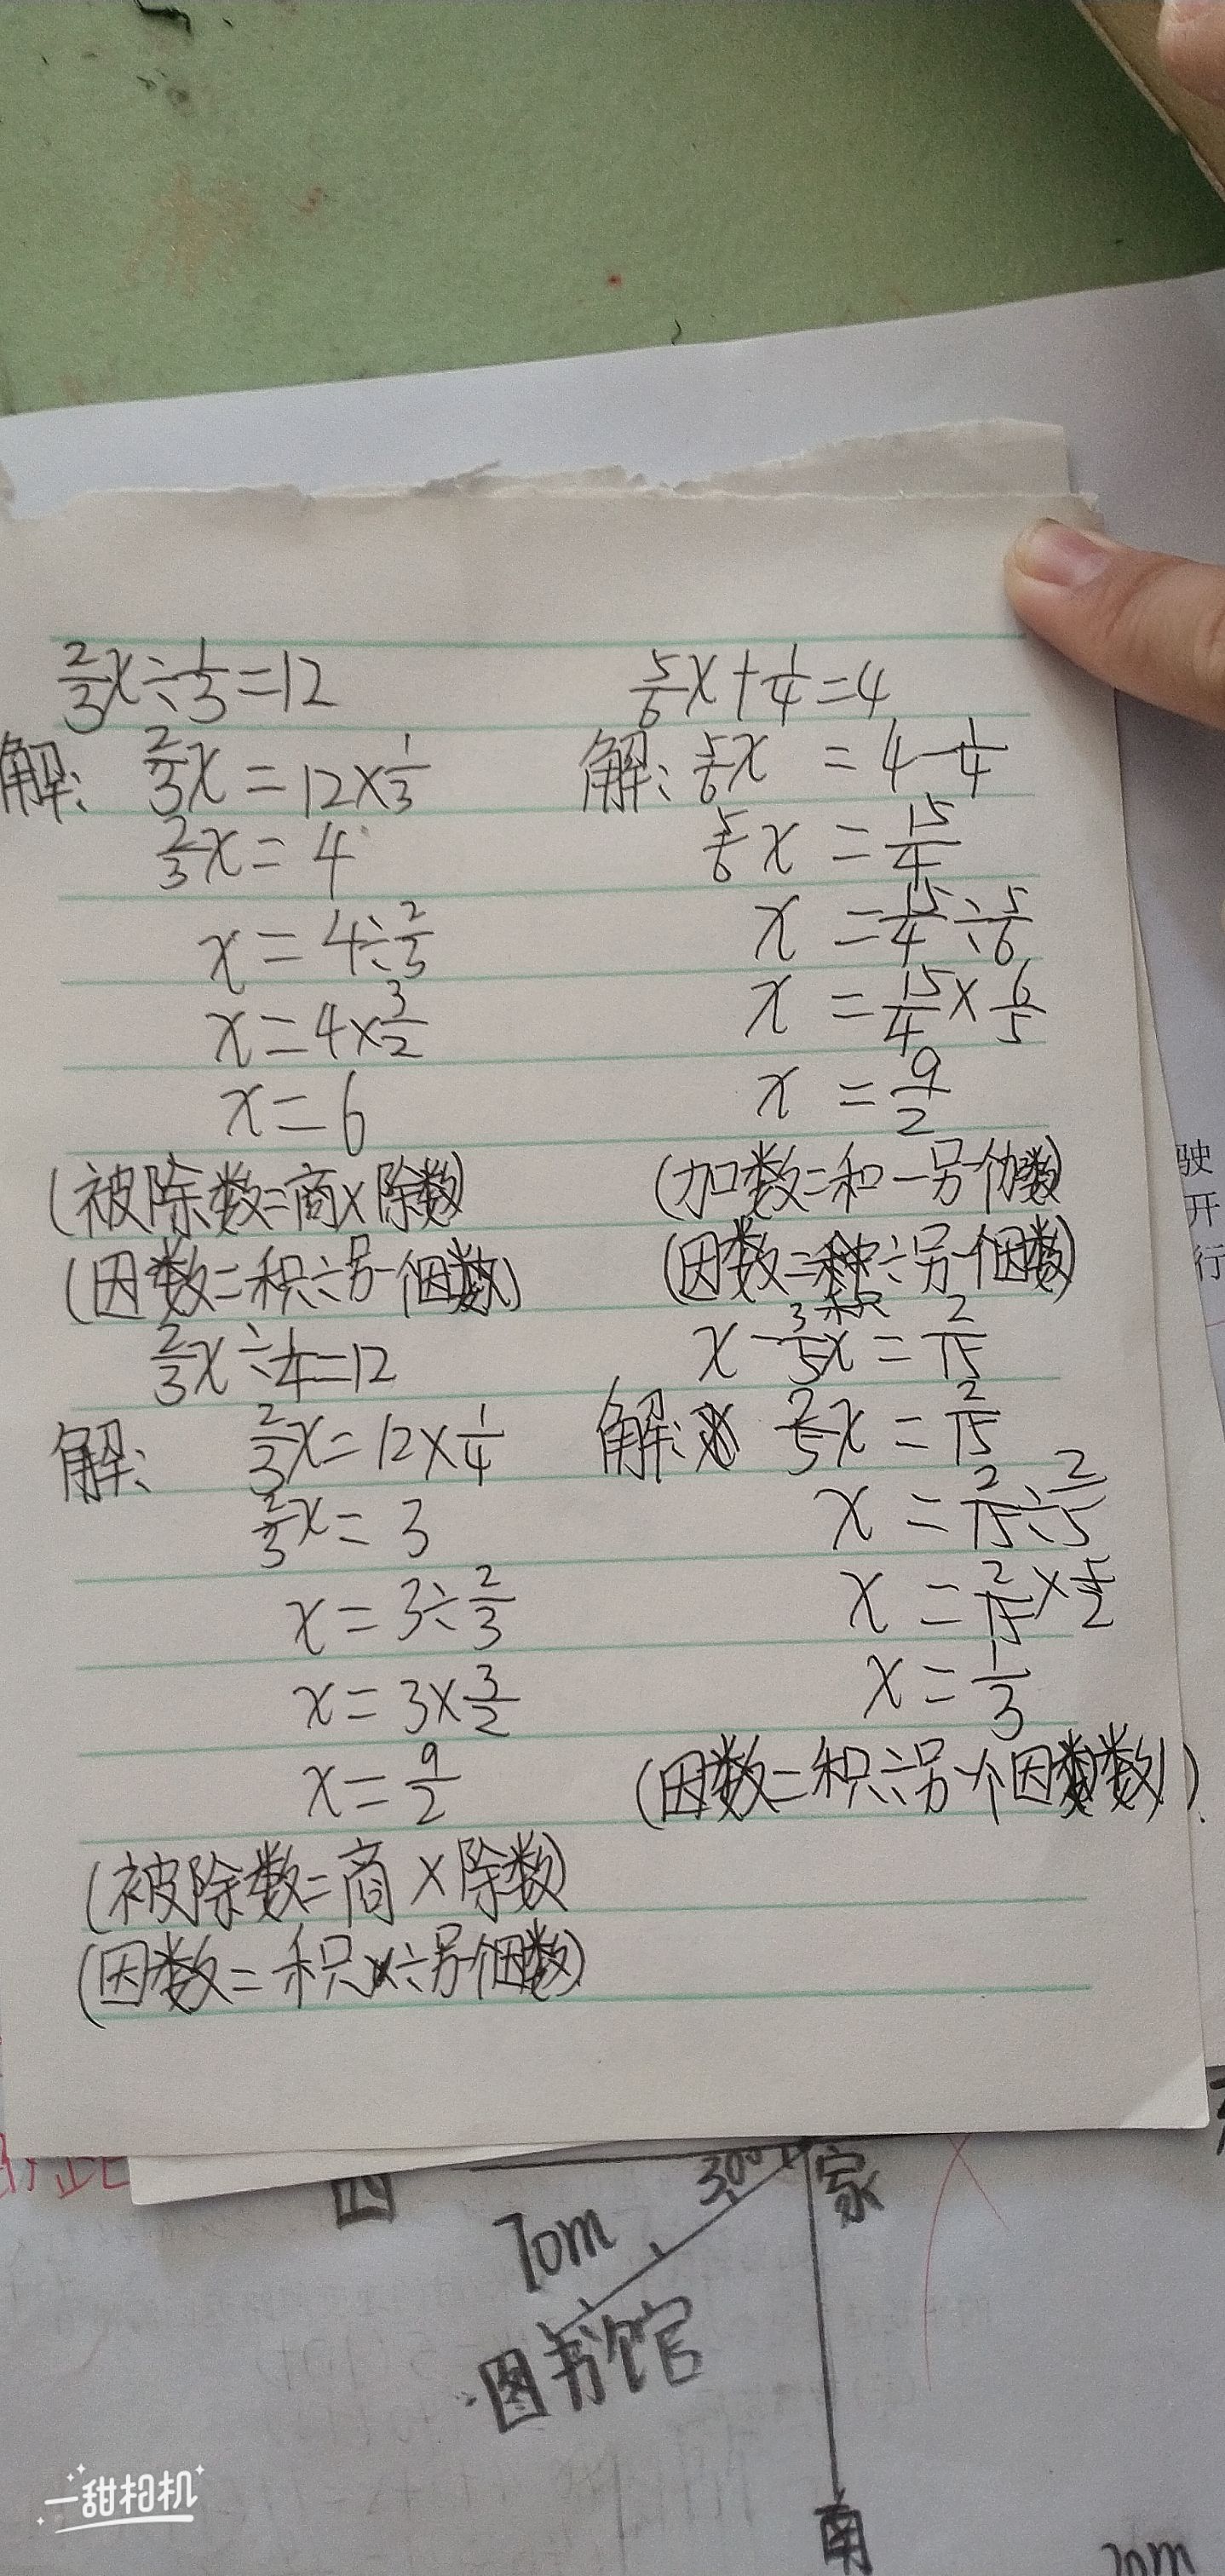 2/3x÷1/3=12
解: 2/3x=12×1/3
2/3x=4
x=4÷2/3
x=4×3/2
x=6
(被除数=商×除数)
(因数=积÷另一个因数)
2/3x÷1/4=12
解: 2/3x=12×1/4
2/3x=3
x=3÷2/3
x=3×3/2
x=9/2
(被除数=商×除数)
(因数=积÷另一个因数)
5/6x+1/4=4
解: 5/6x=4-1/4
5/6x=15/4
x=15/4÷5/6
x=15/4×6/5
x=9/2
(加数=和-另一个加数)
(因数=积÷另一个因数)
x-3/5x=2/15
解: 2/5x=2/15
x=2/15÷2/5
x=2/15×5/2
x=1/3
(因数=积÷另一个因数)
驶
开
行
西
30°
家
70m
图书馆
南
一甜相机